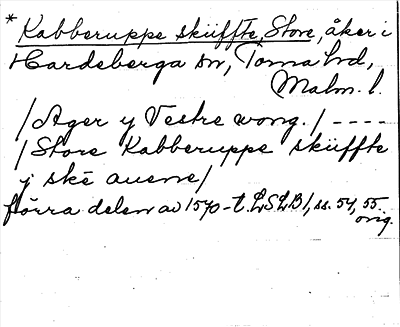 * Kabberuppe sküffte, Store, åker i
Hardeberga sn, Torna hd,
Malm. l.
/Ager y Vestre wong./ ----
/Store Kabberuppe sküffte
j ske auene/
förra delen av 1570-t. LSLB 1, ss. 54, 55.
orig.